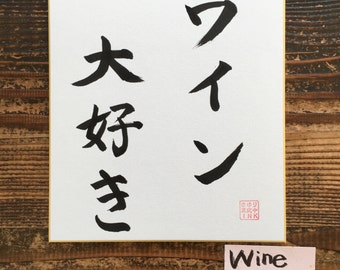 ワイン
大好き
Wine